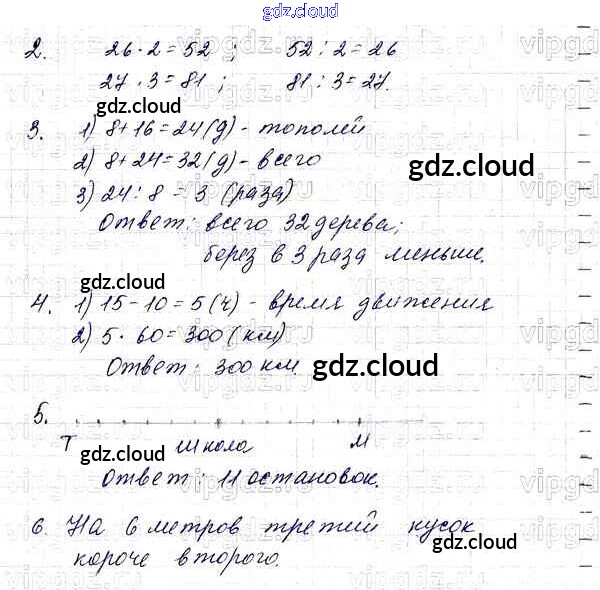 gdz.cloud
2. 26·2=52; 52:2=26
27·3=81; 81:3=27.
gdz.cloud
3. 1) 8+16=24(д)-тополей
2) 8+24=32(д)-всего
gdz.cloud
3) 24:8=3 (раза)
Ответ: всего 32 дерева;
берез в 3 раза меньше.
gdz.cloud
4. 1) 15-10=5(ч)-время движения
2) 5·60=300(км)
Ответ: 300 км.
gdz.cloud
5.
Т школа М
gdz.cloud
Ответ: 11 остановок.
6. На 6 метров третий кусок
короче второго.
gdz.cloud
vipgdz.ru